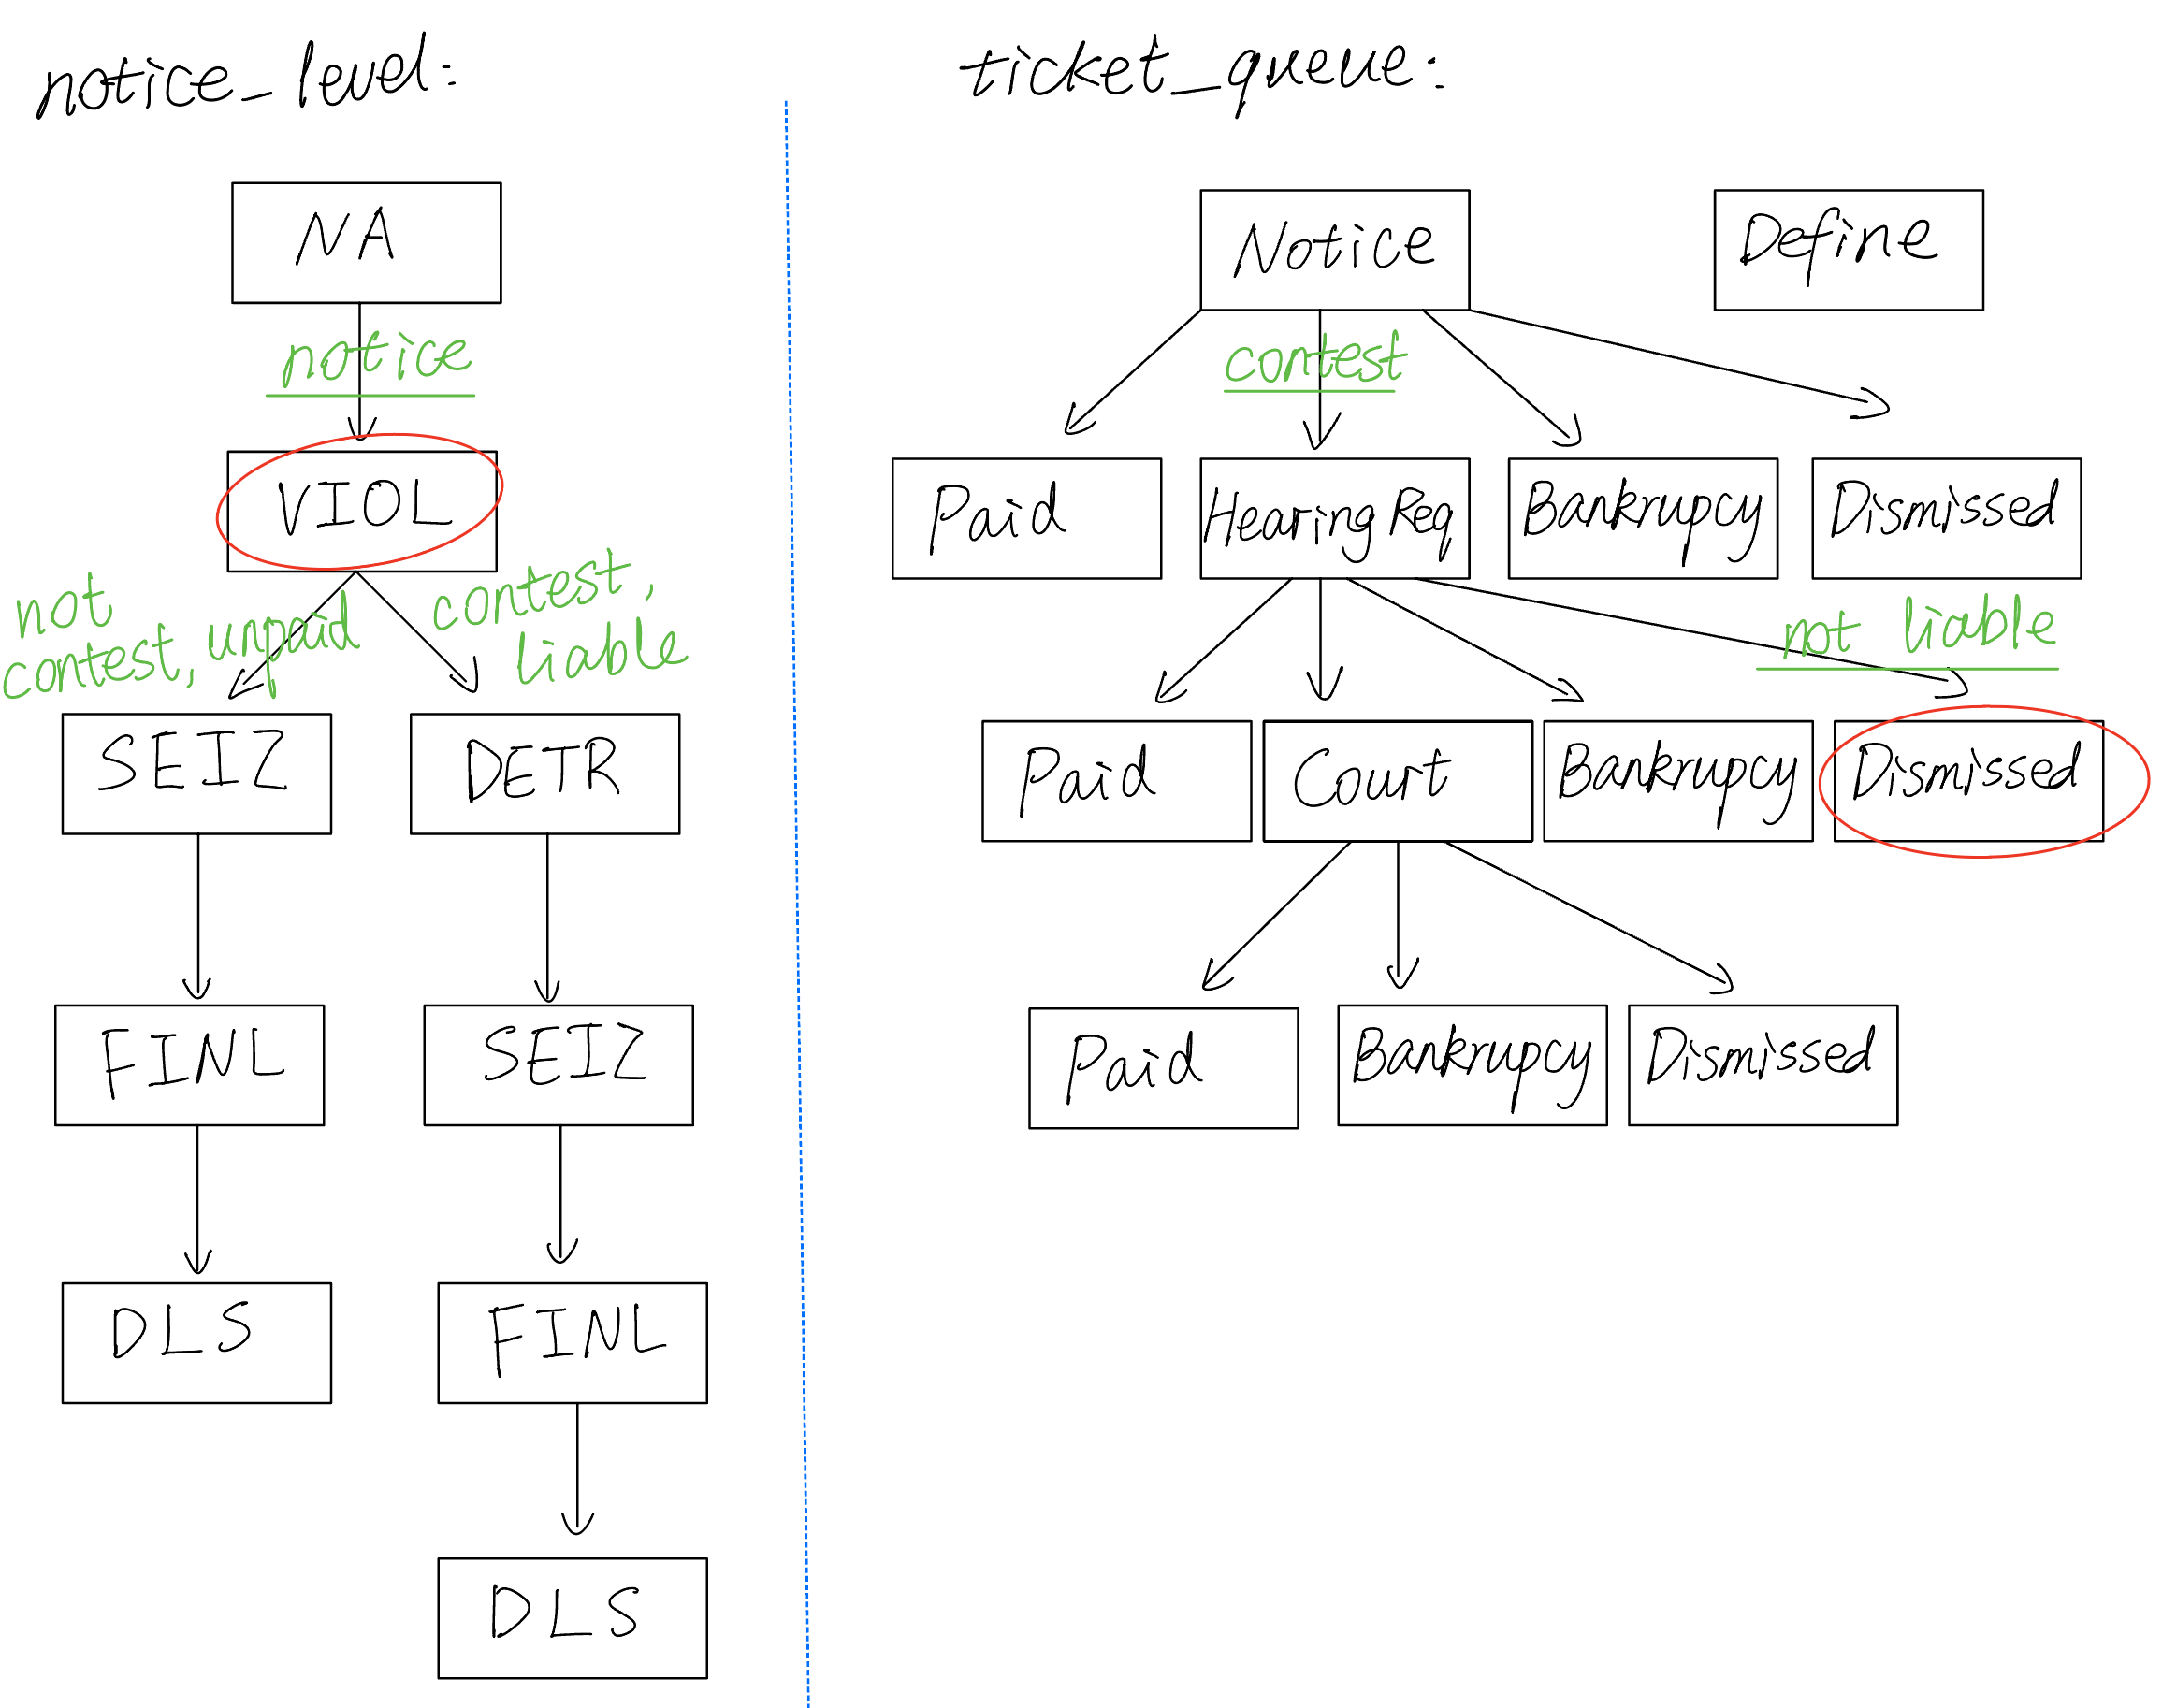 notice_level:
NA
notice
VIOL
not
contest, unpaid
contest,
liable
SEIZ
DETR
FINL
SEIZ
DLS
FINL
DLS
ticket_queue:
Notice
Define
contest
Paid
Hearing Req
Bankrupcy
Dismissed
not liable
Paid
Court
Bankrupcy
Dismissed
Paid
Bankrupcy
Dismissed